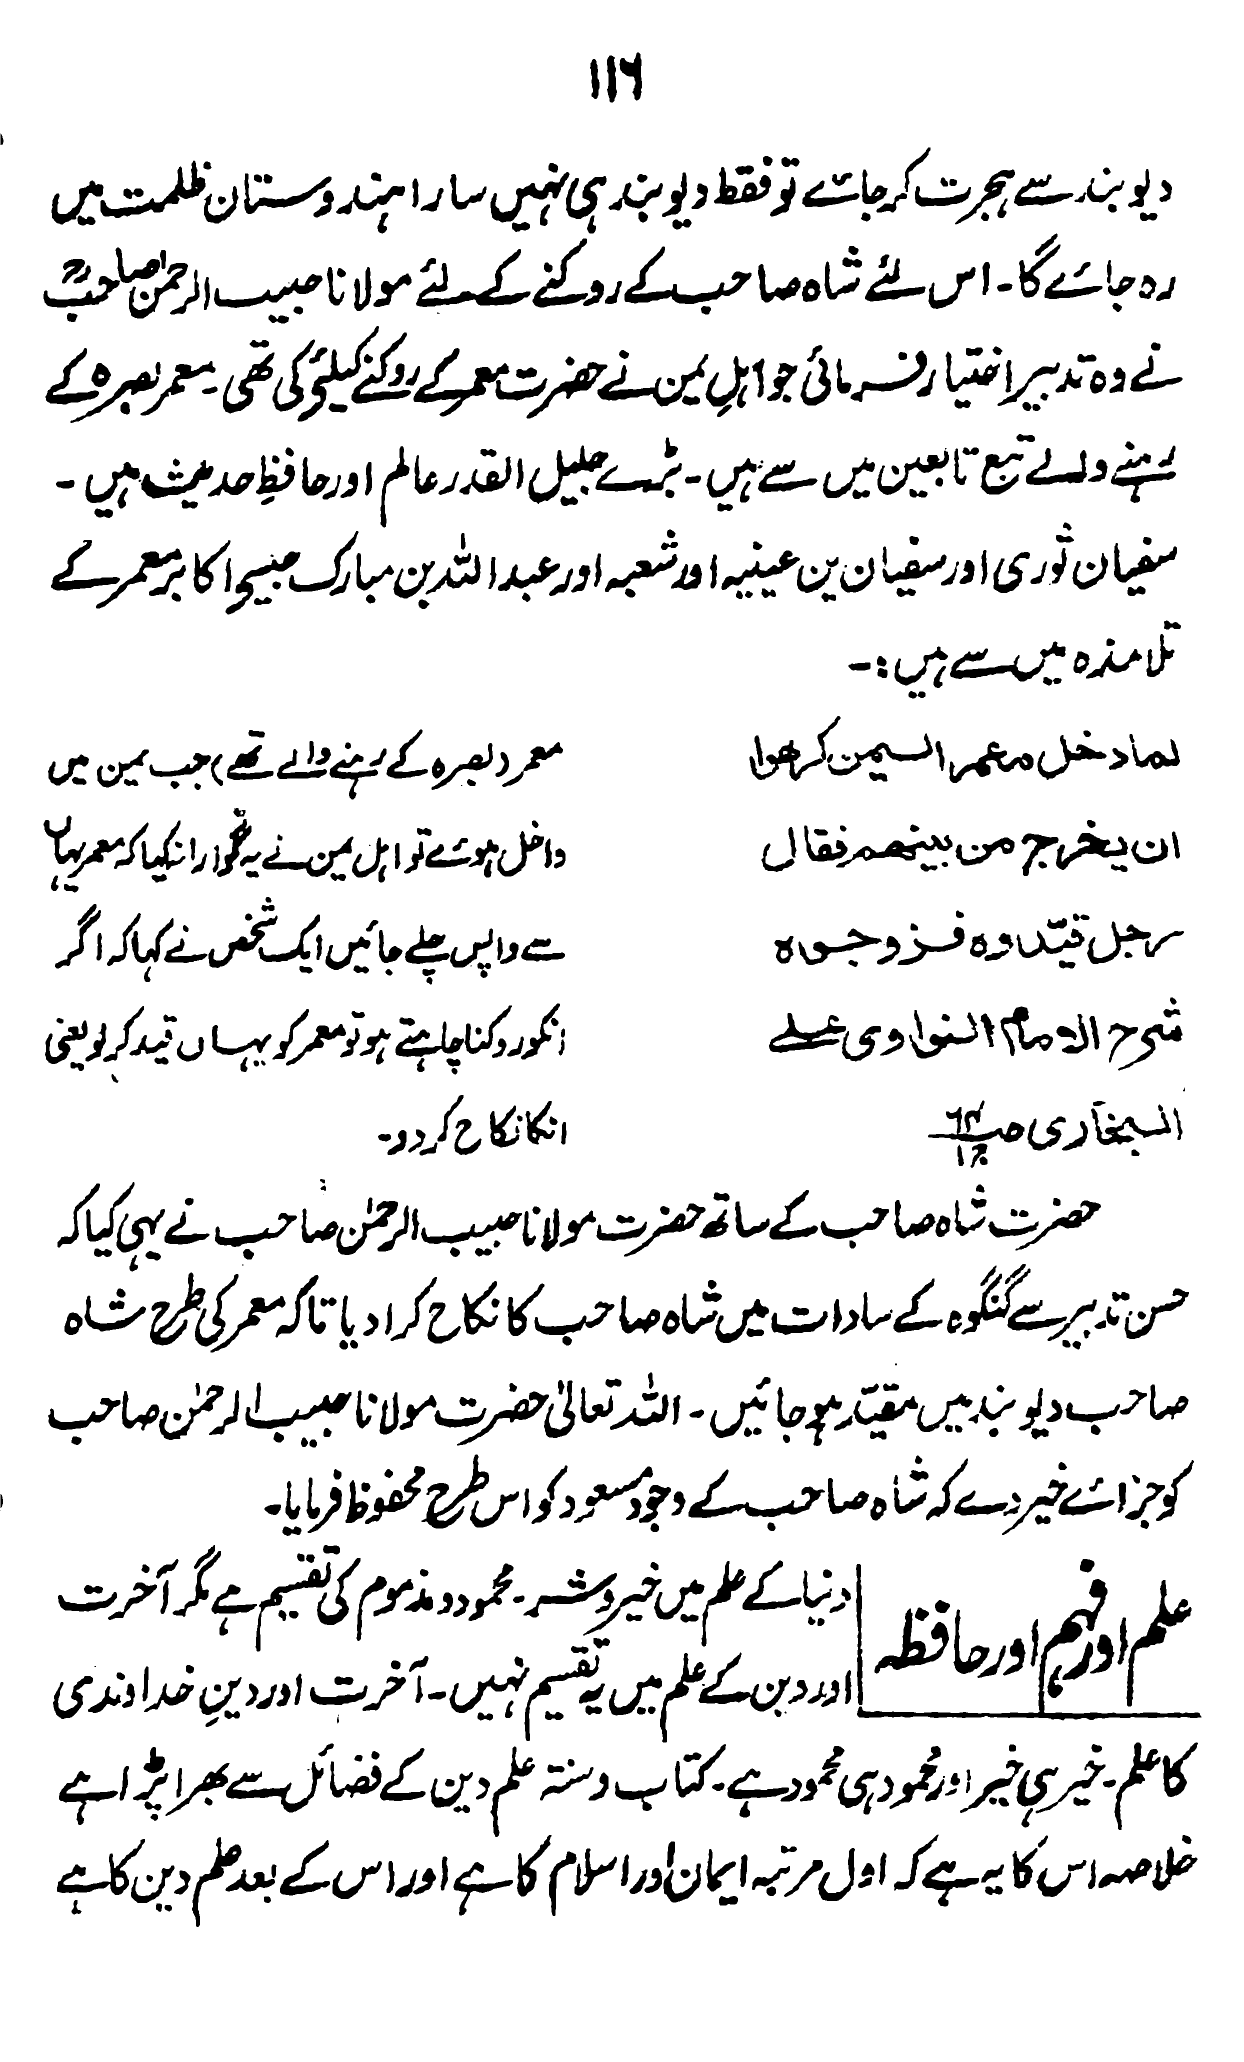 ۱۱۶
دیوبند سے ہجرت کرجائے تو فقط دیوبند ہی نہیں سارا ہندوستان ظلمت میں
رہ جائے گا۔ اس لئے شاہ صاحب کے روکنے کے لئے مولانا حبیب الرحمٰن صاحبؒ
نے وہ تدبیر اختیار فرمائی جو اہلِ یمن نے حضرت معمر کے روکنے کیلئے کی تھی۔ معمر بصرہ کے
رہنے والے تبع تابعین میں سے ہیں۔ بڑے جلیل القدر عالم اور حافظِ حدیث ہیں۔
سفیان ثوری اور سفیان بن عینیہ اور شعبہ اور عبداللہ بن مبارک جیسے اکابر معمر کے
تلامذہ میں سے ہیں:۔
لما دخل معمر الیمن کرھوا
ان یخرج من بینھم فقال
رجل قیّدوہ فزوجوہ
شرح الامام النواوی علے
البخاری صـ ۶۴ / ج۱
معمر (بصرہ کے رہنے والے تھے) جب یمن میں
داخل ہوئے تو اہل یمن نے یہ گوارا نہ کیا کہ معمر یہاں
سے واپس چلے جائیں ایک شخص نے کہا کہ اگر
انکو روکنا چاہتے ہو تو معمر کو یہاں قید کرلو یعنی
انکا نکاح کردو۔
حضرت شاہ صاحب کے ساتھ حضرت مولانا حبیب الرحمٰن صاحب نے یہی کیا کہ
حسن تدبیر سے گنگوہ کے سادات میں شاہ صاحب کا نکاح کرا دیا تاکہ معمر کی طرح شاہ
صاحب دیوبند میں مقیّد ہوجائیں۔ اللہ تعالیٰ حضرت مولانا حبیب الرحمٰن صاحب
کو جزائے خیر دے کہ شاہ صاحب کے وجود مسعود کو اس طرح محفوظ فرمایا۔
علم اور فہم اور حافظہ
دنیا کے علم میں خیر و شر۔ محمود و مذموم کی تقسیم ہے مگر آخرت
اور دین کے علم میں یہ تقسیم نہیں۔ آخرت اور دینِ خداوندی
کا علم۔ خیر ہی خیر اور محمود ہی محمود ہے۔ کتاب و سنۃ علم دین کے فضائل سے بھرا پڑا ہے
خلاصہ اس کا یہ ہے کہ اول مرتبہ ایمان اور اسلام کا ہے اور اس کے بعد علم دین کا ہے